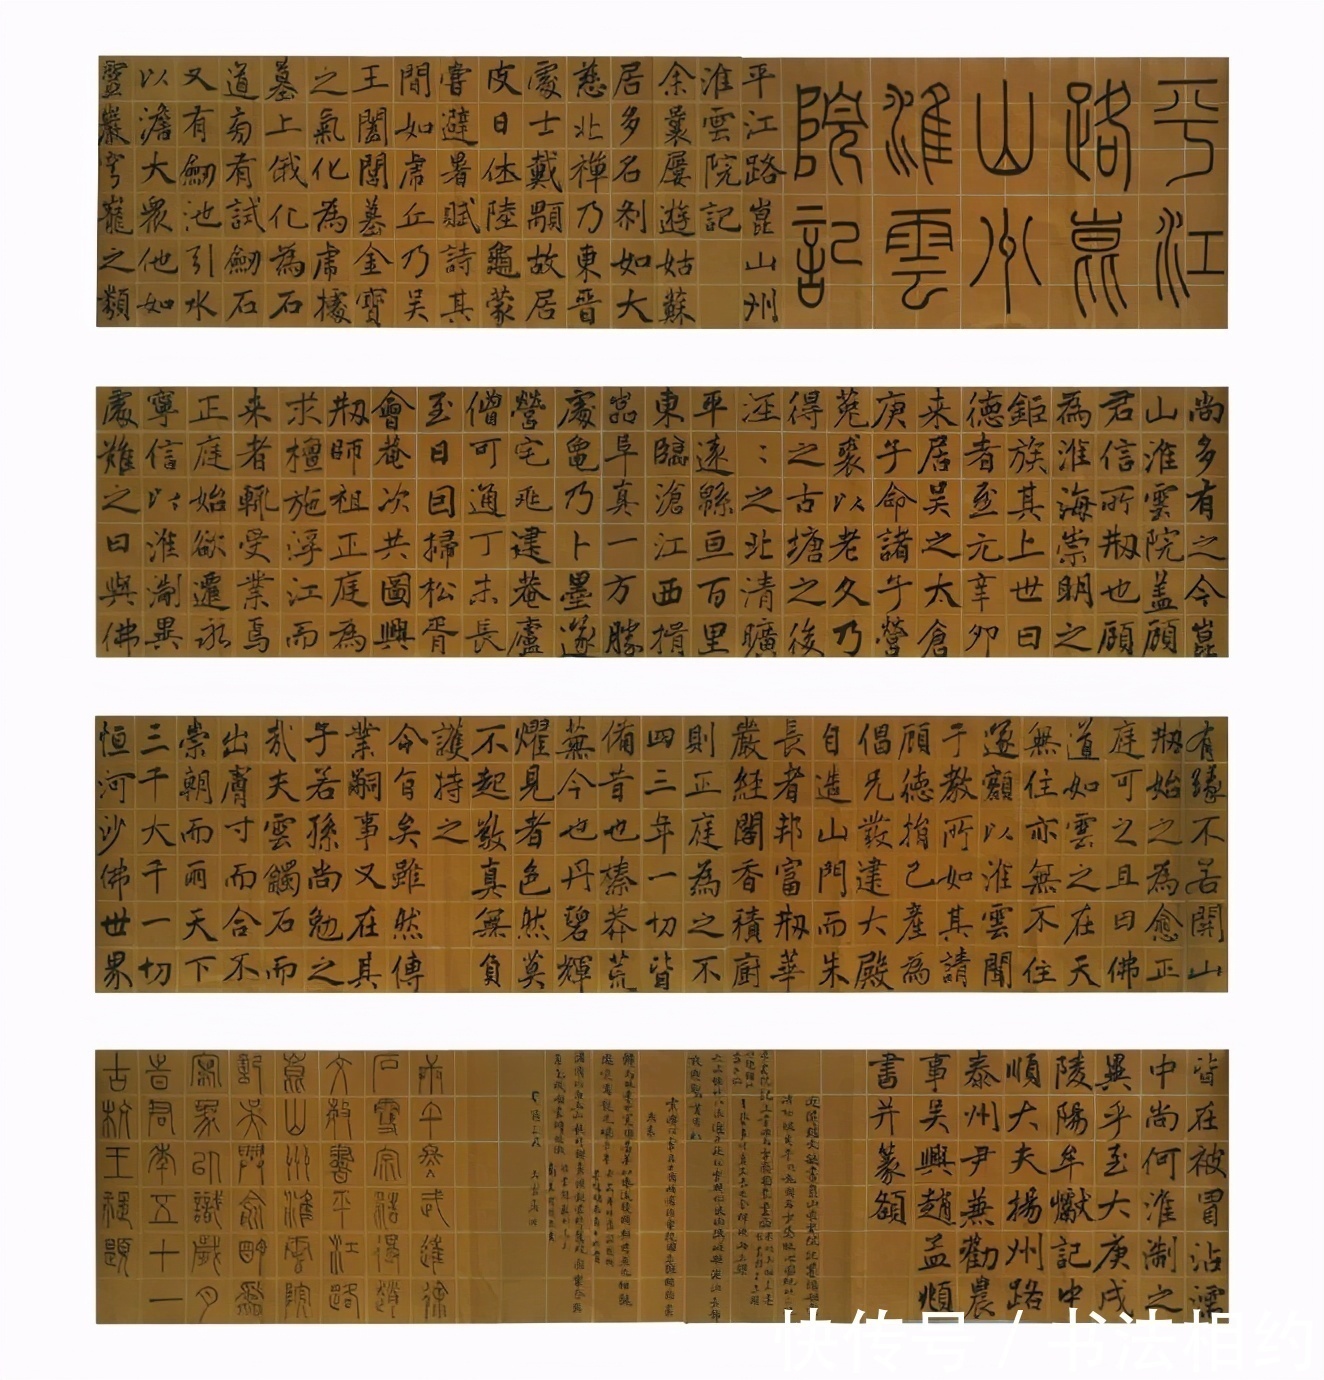 平江
路崑
山州
淮雲
院記
平江路崑山州
淮雲院記
余曩屢遊姑蘇
居多名刹如大
慈北禪乃東晋
處士戴顒故居
皮日休陸龜蒙
嘗避暑賦詩其
間如虎丘乃吳
王闔閭墓金寶
之氣化為虎據
墓上俄化為石
道旁有試劒石
又有劒池引水
以澹大衆他如
靈巖穹窿之類
尚多有之今崑
山淮雲院盖顧
君信所剏也顧
為淮海崇明之
鉅族其上世曰
德者至元辛卯
来居吳之太倉
庚子命諸子營
菟裘以老久乃
得之古塘之後
涇〻之北清曠
平遠緜亘百里
東臨滄江西揖
崑阜真一方勝
處黽乃卜墨遂
營宅兆建菴廬
僧可通丁未長
至日因掃松胥
會菴次共圖興
剏師祖正庭為
求檀施浮江而
来者輒受業焉
正庭始欲遷永
寧信以淮淛異
處難之曰與佛
有緣不若開山
剏始之為愈正
庭可之且曰佛
道如雲之在天
無住亦無不住
遂額以淮雲聞
于教所如其請
顧德捐己產為
倡兄發建大殿
自造山門而朱
長者邦富剏華
嚴經閣香積廚
則正庭為之不
四三年一切皆
備昔也榛莽荒
蕪今也丹碧輝
燿見者色然莫
不起敬真無負
護持之
令旨矣雖然傳
業嗣事又在其
子若孫尚勉之
哉夫雲觸石而
出膚寸而合不
崇朝而雨天下
三千大千一切
恒河沙佛世界
皆在被冒沾濡
中尚何淮淛之
異乎至大庚戌
陵陽牟巘記中
順大夫揚州路
泰州尹兼勸農
事吳興趙孟頫
書并篆額
丙午冬武進徐
石雪宗浩得趙
文敏書平江路
崑山州淮雲院
記吳門俞明為
寫象以識歲月
旹君年五十一
古杭王禔題
快传号 / 书法相约